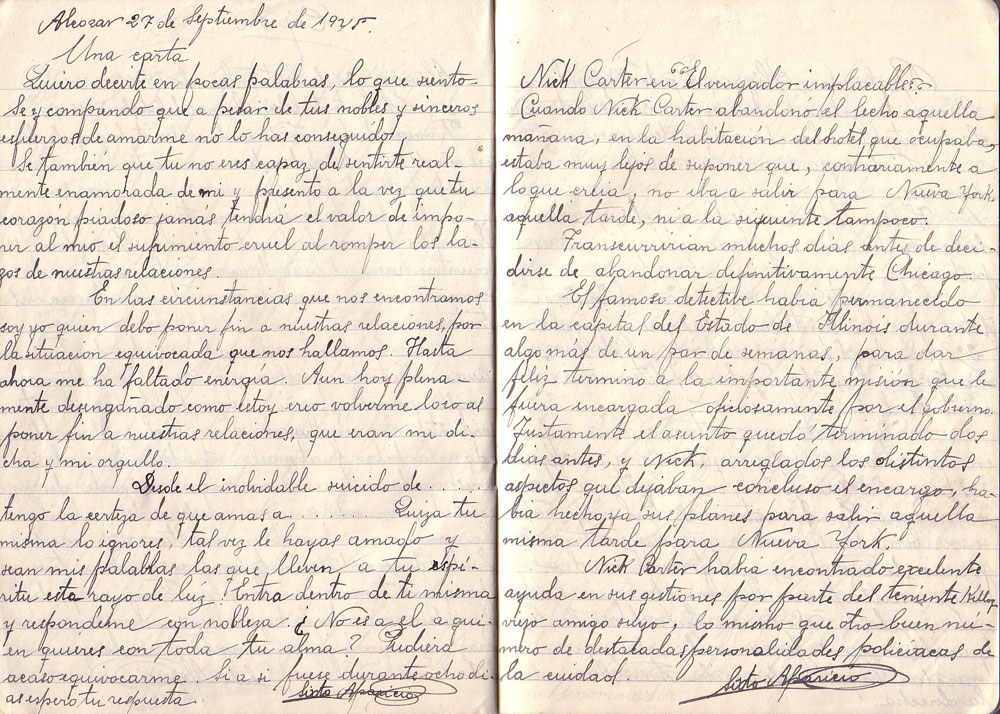 Alcozar 27 de Septiembre de 1925.
Una carta
Quiero decirte en pocas palabras, lo que siento
Se y comprendo que a pesar de tus nobles y sinceros
esfuerzos de amarme no lo has conseguido
Se también que tu no eres capaz de sentirte real-
mente enamorada de mi y presento a la vez que tu
corazón piadoso jamás tendrá el valor de impo-
ner al mio el sufrimiento cruel al romper los la-
zos de nuestras relaciones.
En las circunstancias que nos encontramos
soy yo quien debo poner fin a nuestras relaciones, por
la situacion equivocada que nos hallamos. Hasta
ahora me ha faltado energía. Aun hoy plena-
mente desengañado como estoy creo volverme loco al
poner fin a nuestras relaciones, que eran mi di-
cha y mi orgullo.
Desde el inolvidable suicido de . . . .
tengo la certeza de que amas a . . . . . . Quiza tu
misma lo ignores, tal vez le hayas amado y
sean mis palabras las que lleven a tu espi-
ritu esta rayo de luz! Entra dentro de ti misma
y respondeme con nobleza. ¿No es a el a qui-
en quieres con toda tu alma? Pudiera
acaso equivocarme. Si a si fuese durante ocho di-
as espero tu respuesta
Sixto Aparicio
Nick Carter en "El vengador implacable"
Cuando Nick Carter abandono el lecho aquella
mañana, en la habitación del hotel que ocupaba,
estaba muy lejos de suponer que, contrariamente a
lo que creia, no iba a salir para Nueva York
aquella tarde, ni a la siguiente tampoco.
Transcurririan muchos dias antes de deci-
dirse de abandonar definitivamente Chicago.
El famoso detective habia permanecido
en la capital del Estado de Illinois durante
algo más de un par de semanas, para dar
feliz termino a la importante misión que le
fuera encargada oficiosamente por el gobierno.
Justamente el asunto quedo terminado dos
dias antes, y Nick, arreglados los distintos
aspectos que dejaban concluso el encargo, ha-
bia hecho ya sus planes para salir aquella
misma tarde para Nueva York.
Nick Carter habia encontrado excelente
ayuda en sus gestiones por parte del teniente
viejo amigo suyo, lo mismo que otro buen nu-
mero de destacadas personalidades policiacas de
la cuidad.
Sixto Aparicio